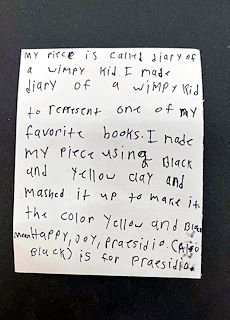 my piece is called diary of
a wimpy kid. I made
diary of a wimpy kid
to represent one of my
favorite books. I made
my piece using Black
and yellow clay and
mashed it up to make it.
the color yellow and Black
mean Happy, Joy, praesidio. (Also
Black) is for praesidio.